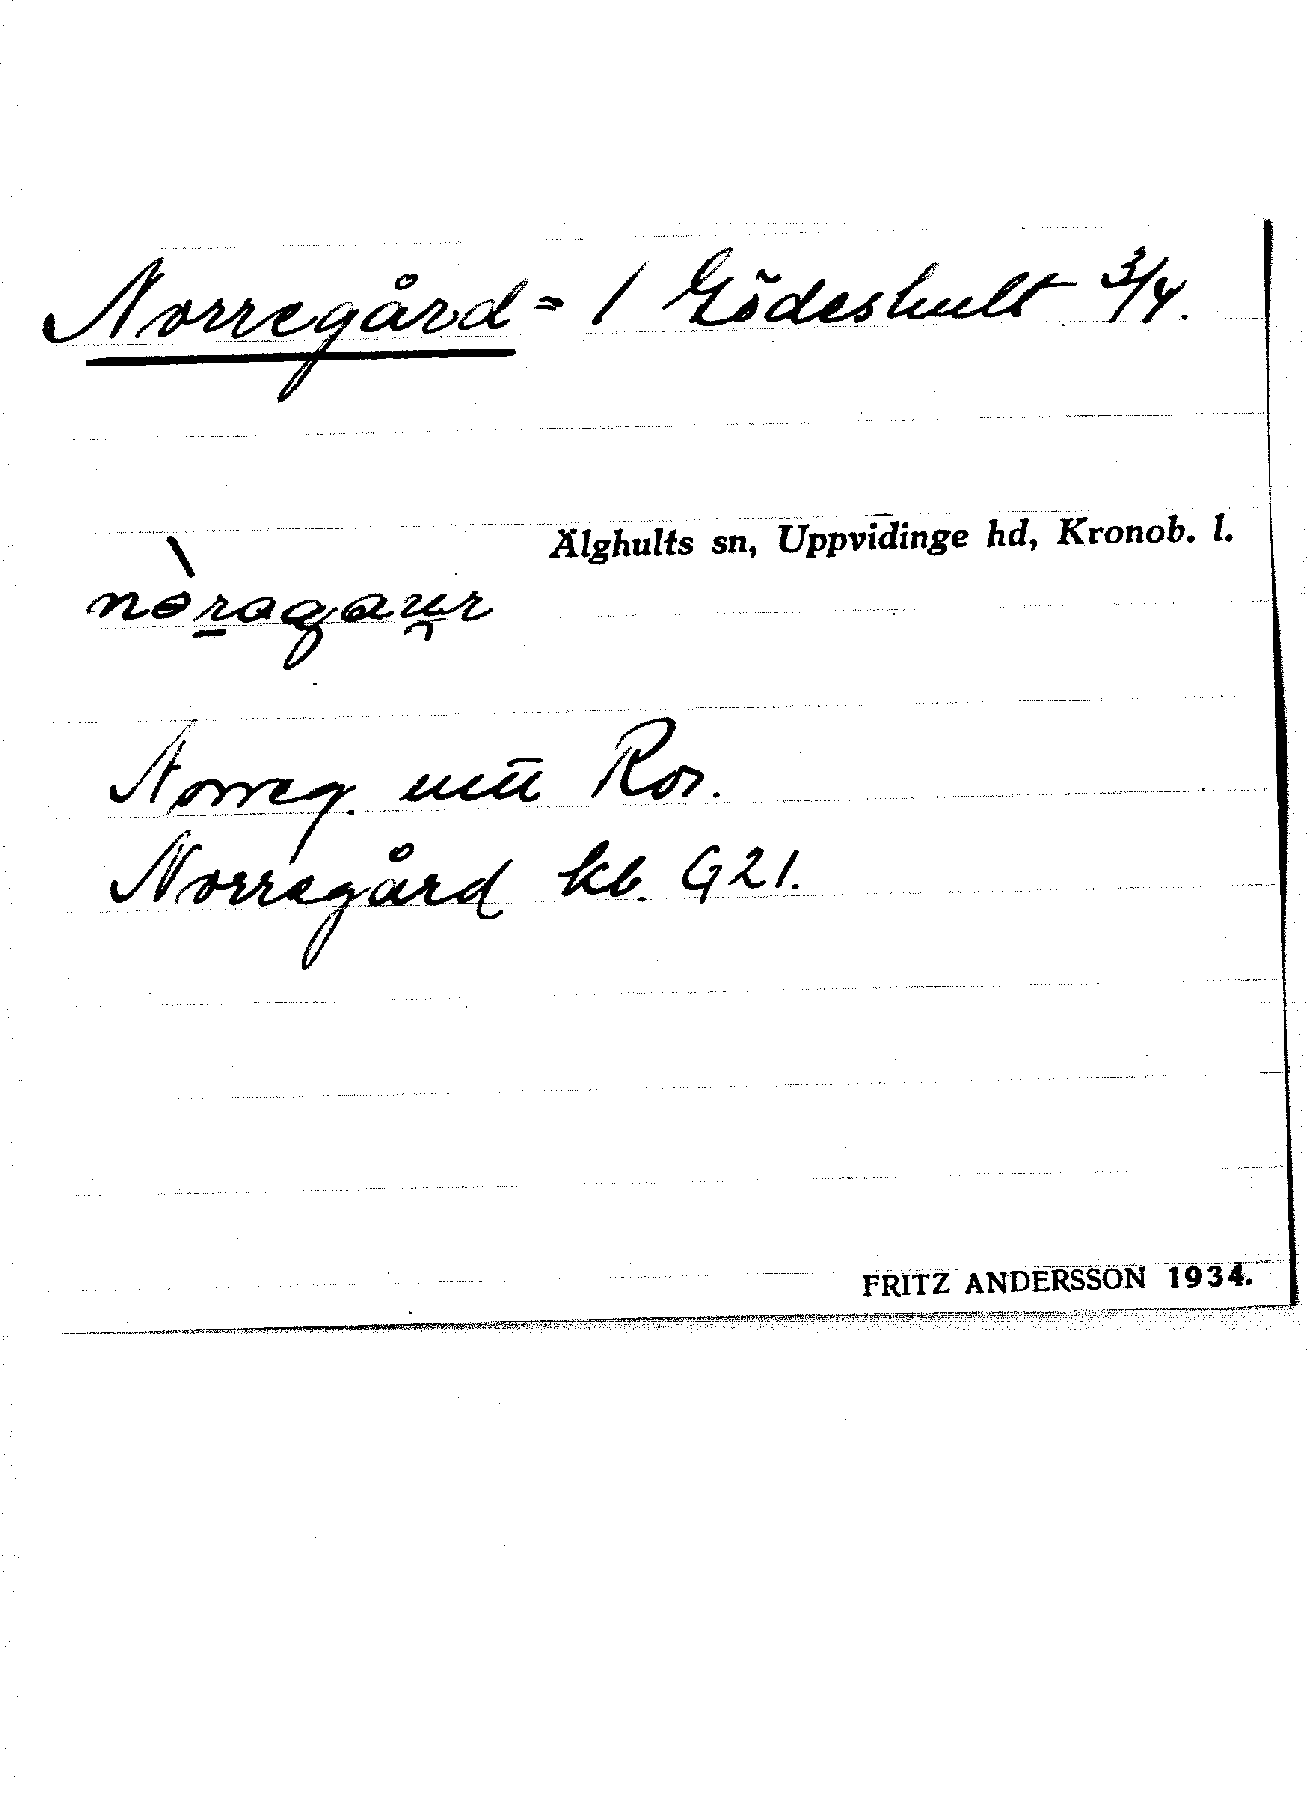 Norregård = 1 Gödeshult 3/4.
Älghults sn, Uppvidinge hd, Kronob. l.
nòr̲agau̯r
Norreg. Ror.
Norregård kb. G21.
FRITZ ANDERSSON 1934.